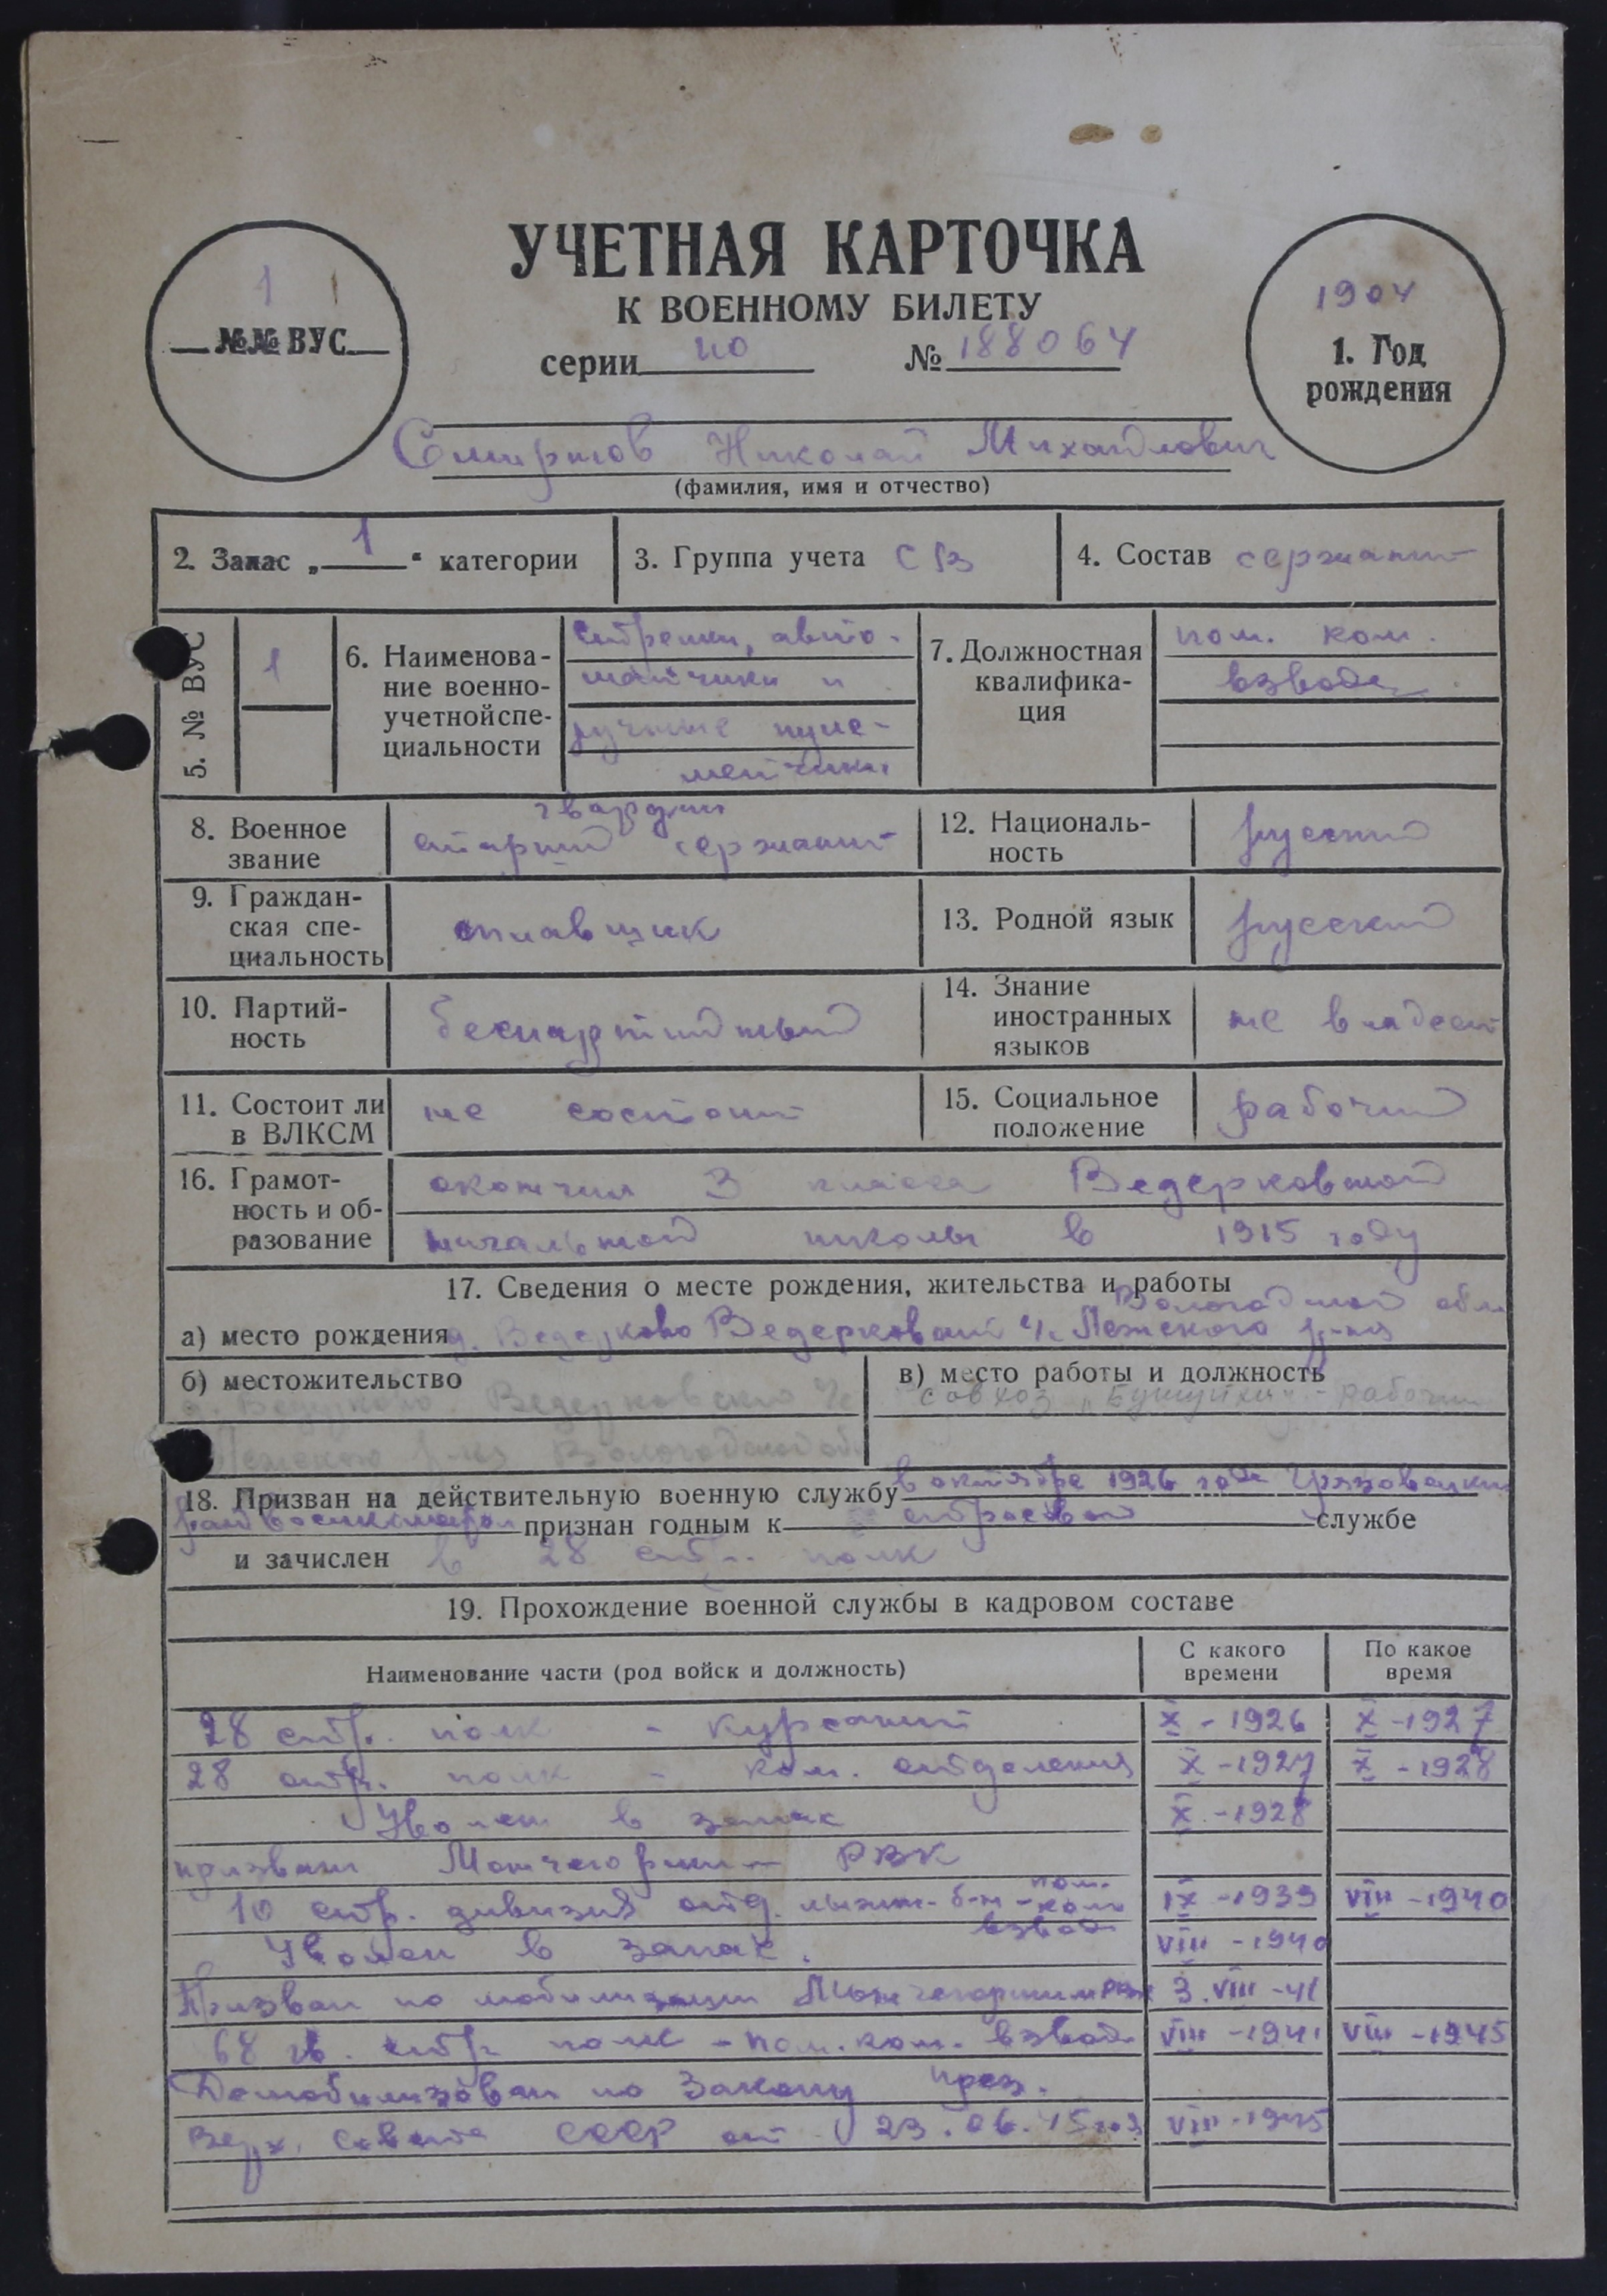 УЧЕТНАЯ КАРТОЧКА
К ВОЕННОМУ БИЛЕТУ
серии ио № 188064
1
№№ ВУС
1904
1. Год
рождения
Смирнов Николай Михайлович
(фамилия, имя и отчество)
2. Запас „ 1 “ категории
3. Группа учета СВ
4. Состав сержант
5. № ВУС
1
6. Наименова-
ние военно-
учетной спе-
циальности
Стрелки, авто-
матчики и
ручные пуле-
метчики
7. Должностная
квалифика-
ция
пом. ком.
взвода
8. Военное
звание
гвардии
старший сержант
12. Националь-
ность
русский
9. Граждан-
ская спе-
циальность
сплавщик
13. Родной язык
русский
10. Партий-
ность
беспартийный
14. Знание
иностранных
языков
не владеет
11. Состоит ли
в ВЛКСМ
не состоит
15. Социальное
положение
рабочий
16. Грамот-
ность и об-
разование
окончил 3 класса Ведерковской
начальной школы в 1915 году
17. Сведения о месте рождения, жительства и работы
Вологодской обл
а) место рождения д. Ведерково Ведерковский ч/с Лежского р-на
б) местожительство
д. Ведерково Ведерковского
Лежского р-на Вологодской обл
в) место работы и должность
совхоз - рабочий
18. Призван на действительную военную службу в октябре 1926 года Грязовецким
райвоенкоматом признан годным к строевой службе
и зачислен в 28 стр. полк
19. Прохождение военной службы в кадровом составе
Наименование части (род войск и должность)
С какого
времени
По какое
время
28 стр. полк - курсант X - 1926 X - 1927
28 стр. полк - ком. отделения X - 1927 X - 1928
Уволен в запас X - 1928
призван Мончегорским РВК
10 стр. дивизия отд. лыжн. б-н - пом. ком взвода IX - 1939 VIII - 1940
Уволен в запас. VIII - 1940
Призван по мобилизации Мончегорским РВК 3. VIII - 41
68 гв. стр. полк - пом. ком. взвода VIII - 1941 VIII - 1945
Демобилизован по Закону през.
Верх. Совета СССР от 23.06.45 года VIII - 1945